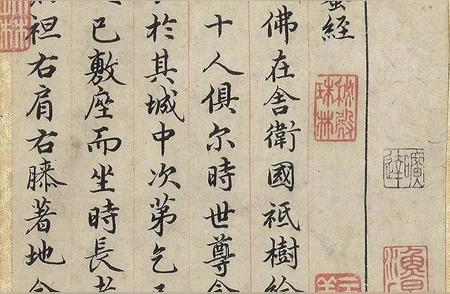 曠達
秘殿珠林
蜜經
佛在舍衛國祇樹給
十人俱尔時世尊食
於其城中次第乞
已敷座而坐時長老
袒右肩右膝著地合